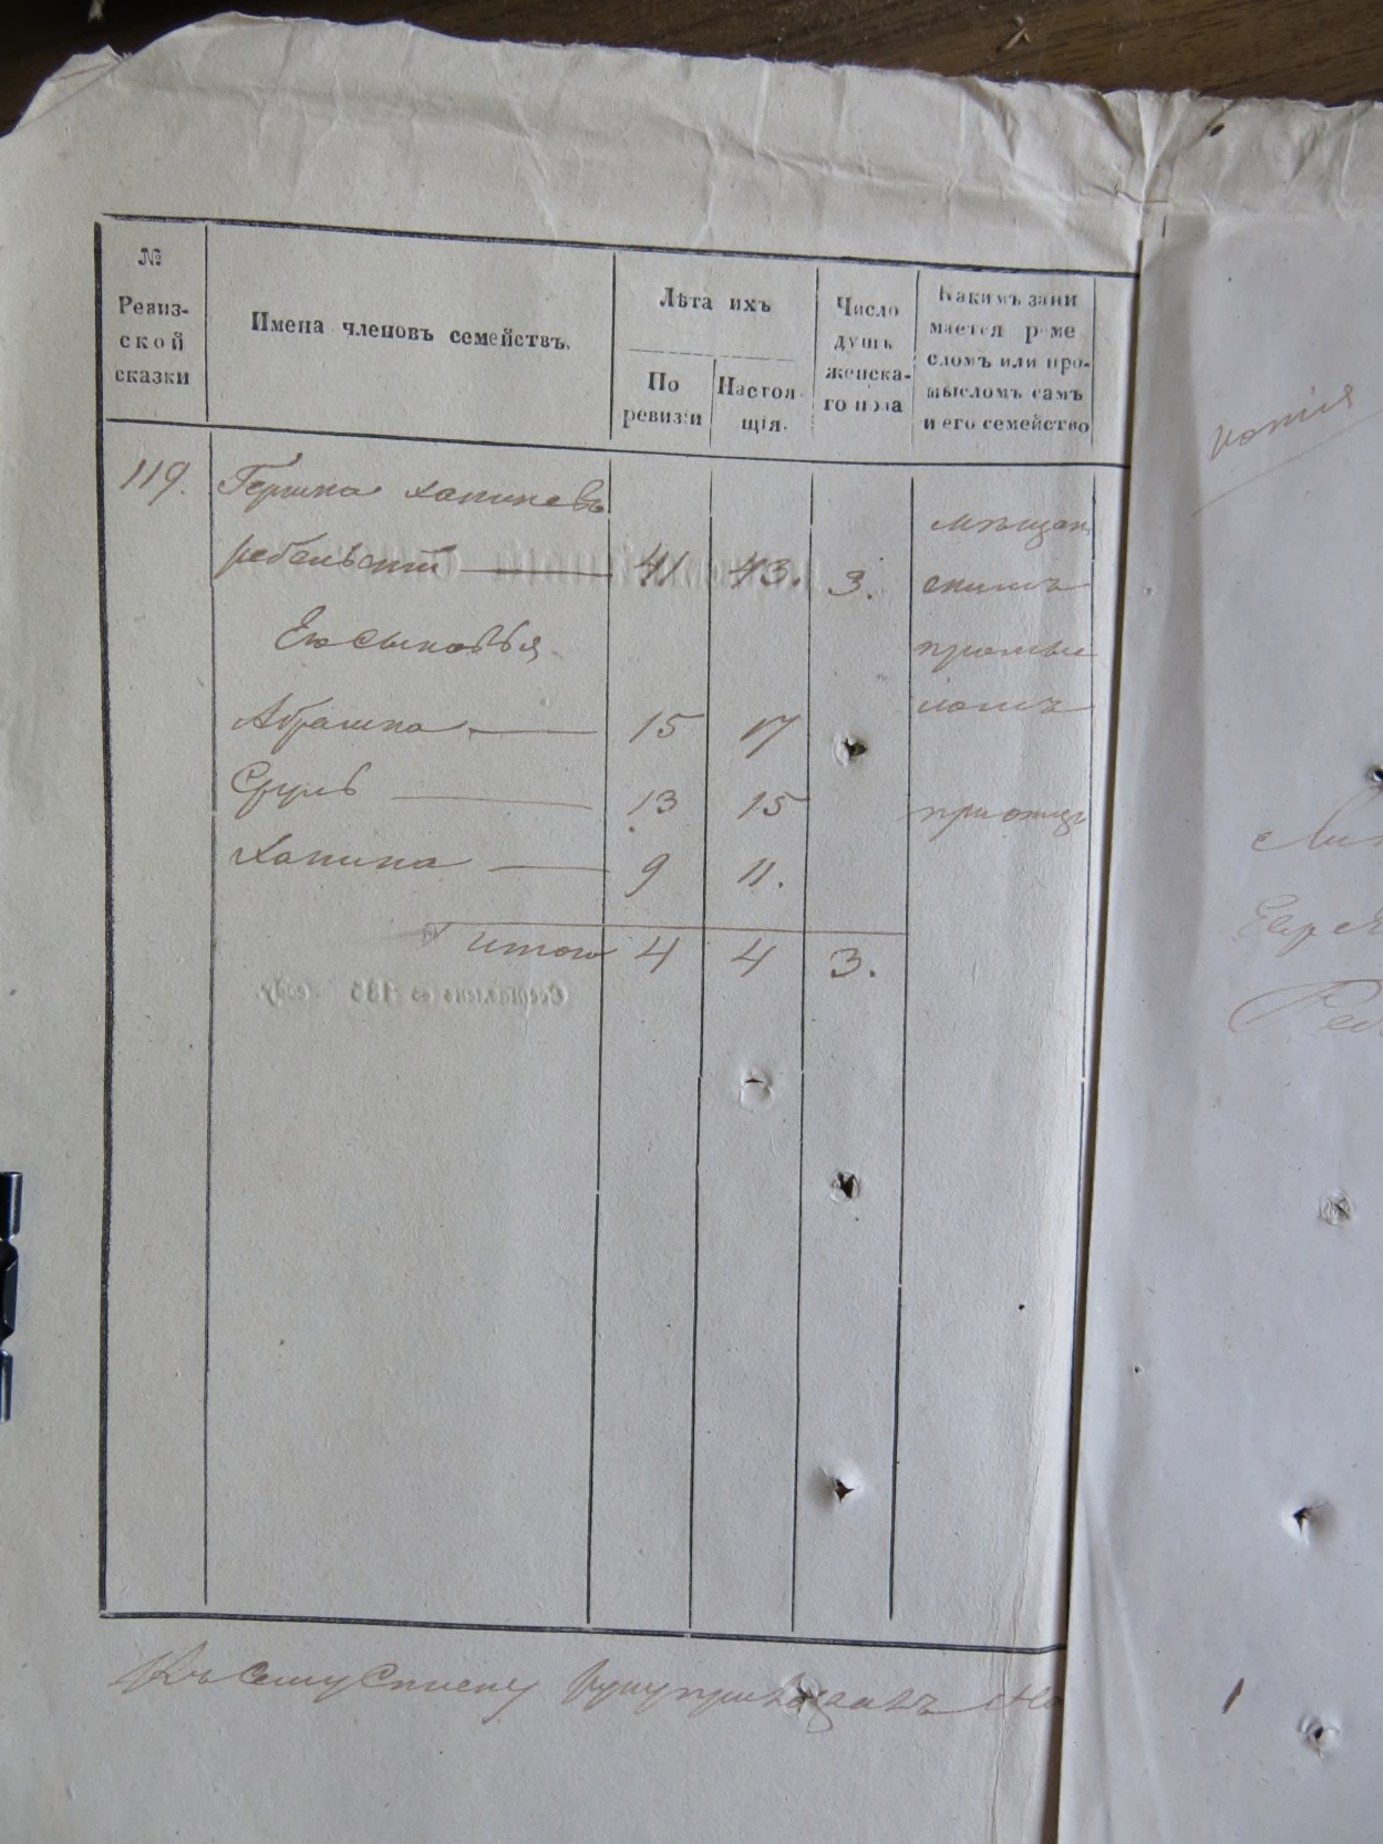 №
Ревиз-
ской
сказки
Имена членовъ семействъ.
Лѣта ихъ
По
ревизіи
Настоя-
щія.
Число
душъ
женска-
го пола
Какимъ зани
мается реме
сломъ или про-
мысломъ самъ
и его семейство
119. Гершка Хапиневъ
ребельскій 41 43. 3.
мѣщан
скимъ
промы
сломъ
Его сыновья
Абрашка 15 17
Сруль 13 15
при отцѣ
Хапина 9 11.
Итого 4 4 3.
Составленъ въ 185 году.
Къ сему списку руку приложилъ
копія
Евре